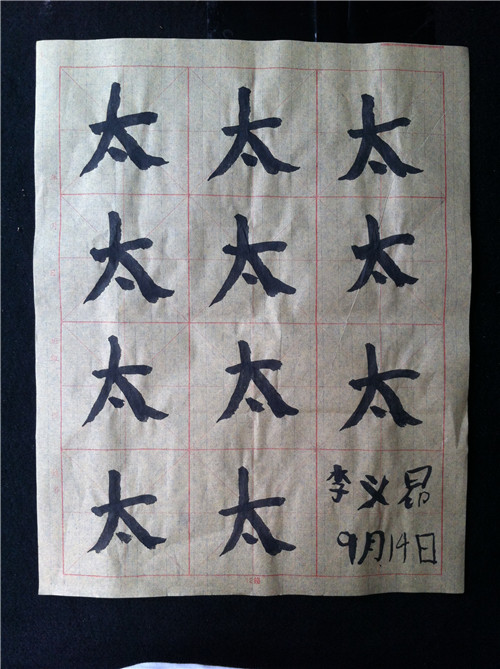 太 太 太
太 太 太
太 太 太
太 太 李义昂
9月14日